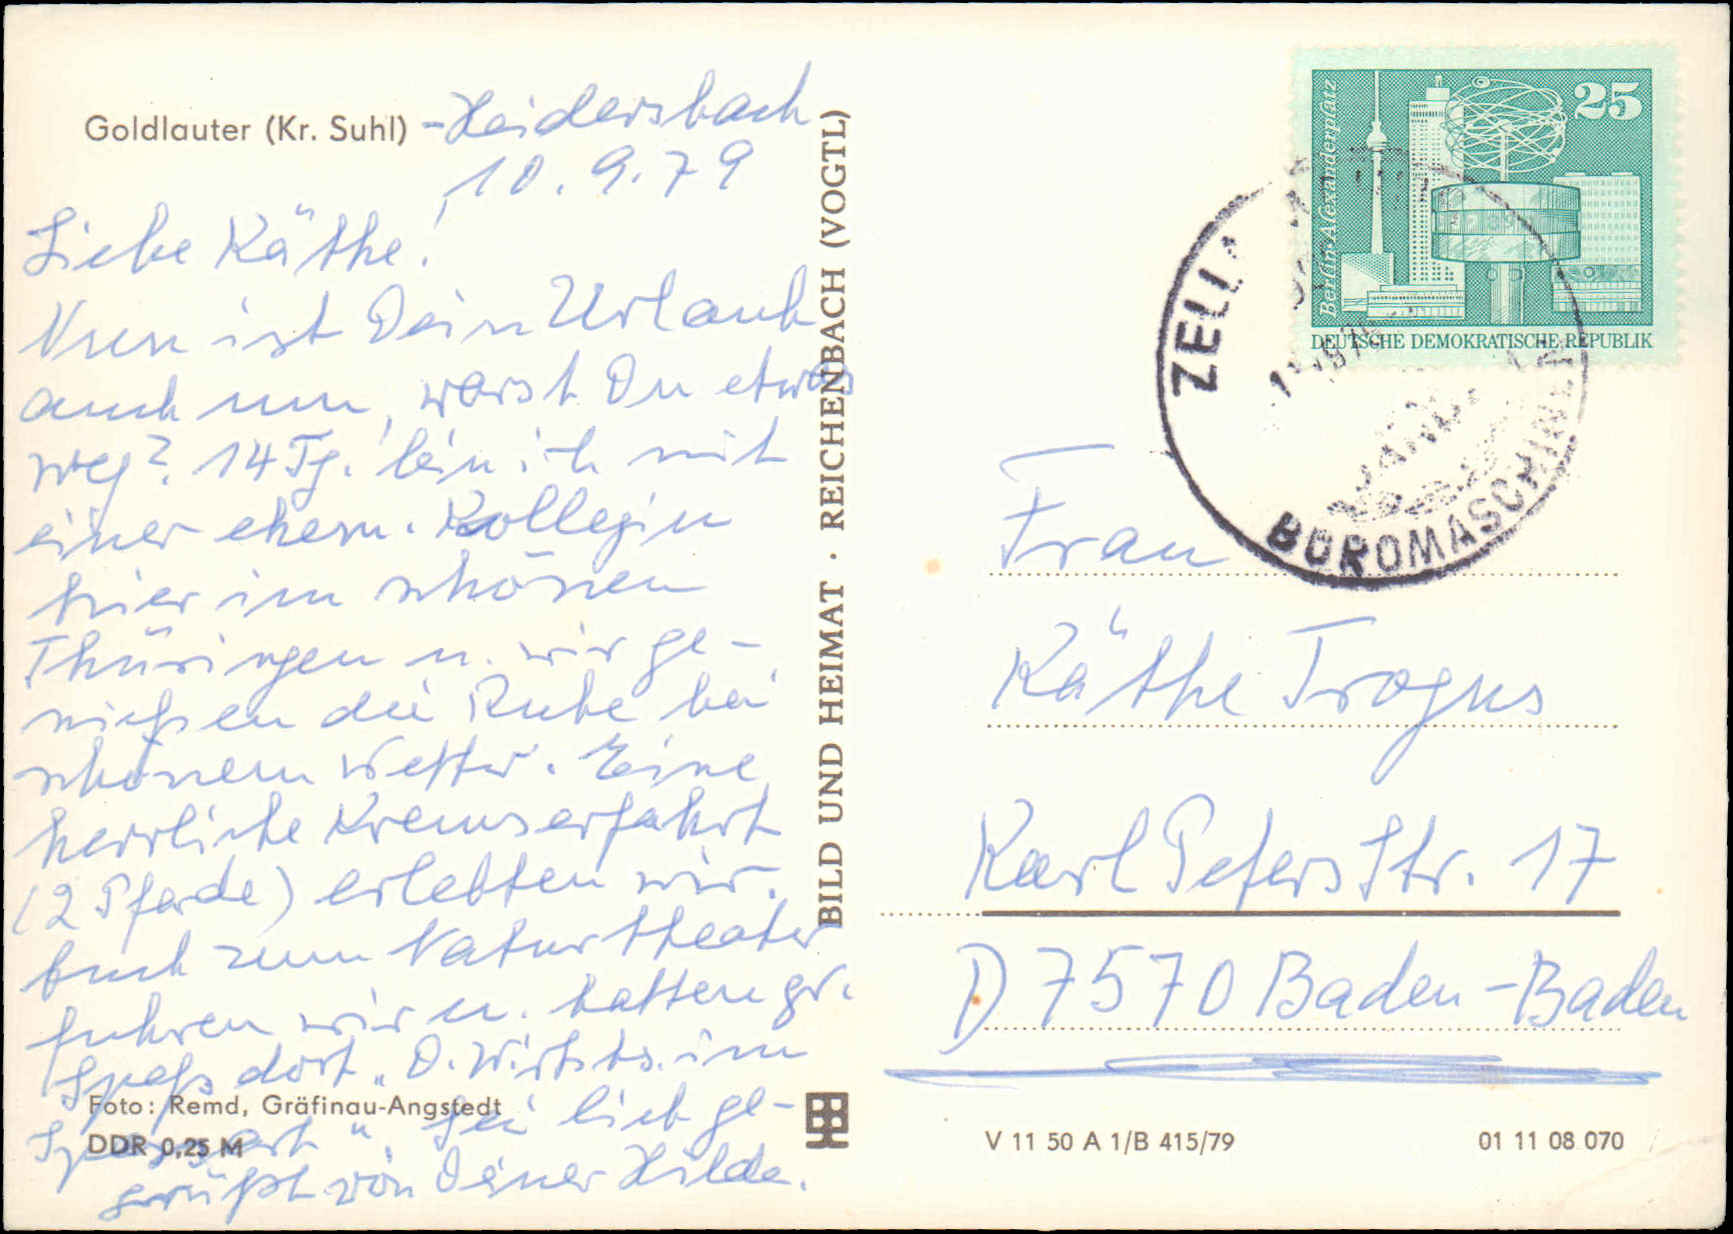 Goldlauter (Kr. Suhl) - Heidersbach
10.9.79
Liebe Käthe!
Nun ist Dein Urlaub
auch um, warst Du etwas
weg? 14 Tg. bin ich mit
einer ehem. Kollegin
hier im schönen
Thüringen u. wir ge-
nießen die Ruhe bei
schönem Wetter. Eine
herrliche Kremserfahrt
(2 Pferde) erlebten wir.
Auch zum Naturtheater
fuhren wir u. hatten gr.
Spaß dort „D. Wirtshs. im
Spessart". Sei lieb ge-
grüßt von Deiner Hilde.
Foto: Remd, Gräfinau-Angstedt
DDR 0,25 M
BILD UND HEIMAT · REICHENBACH (VOGTL)
25
Berlin-Alexanderplatz
DEUTSCHE DEMOKRATISCHE REPUBLIK
ZELLA
BÜROMASCHINEN
Frau
Käthe Trogus
Karl Peters Str. 17
D 7570 Baden-Baden
V 11 50 A 1/B 415/79
01 11 08 070